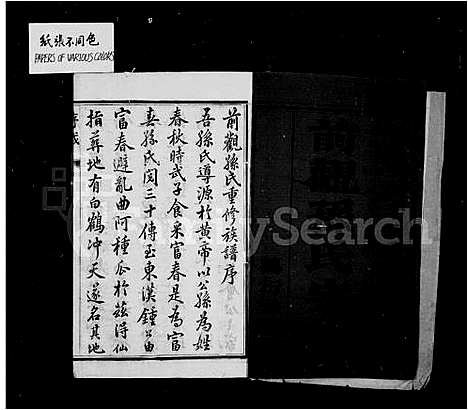 紙張不同色
PAPERS OF VARIOUS COLORS
前觀孫氏重修族譜序
吾孫氏導源於黃帝以公孫為姓
春秋時武子食采富春是為富
春孫氏閱三十傳至東漢鍾公由
富春避亂曲阿種瓜於茲得仙
指葬地有白鶴沖天遂名其地